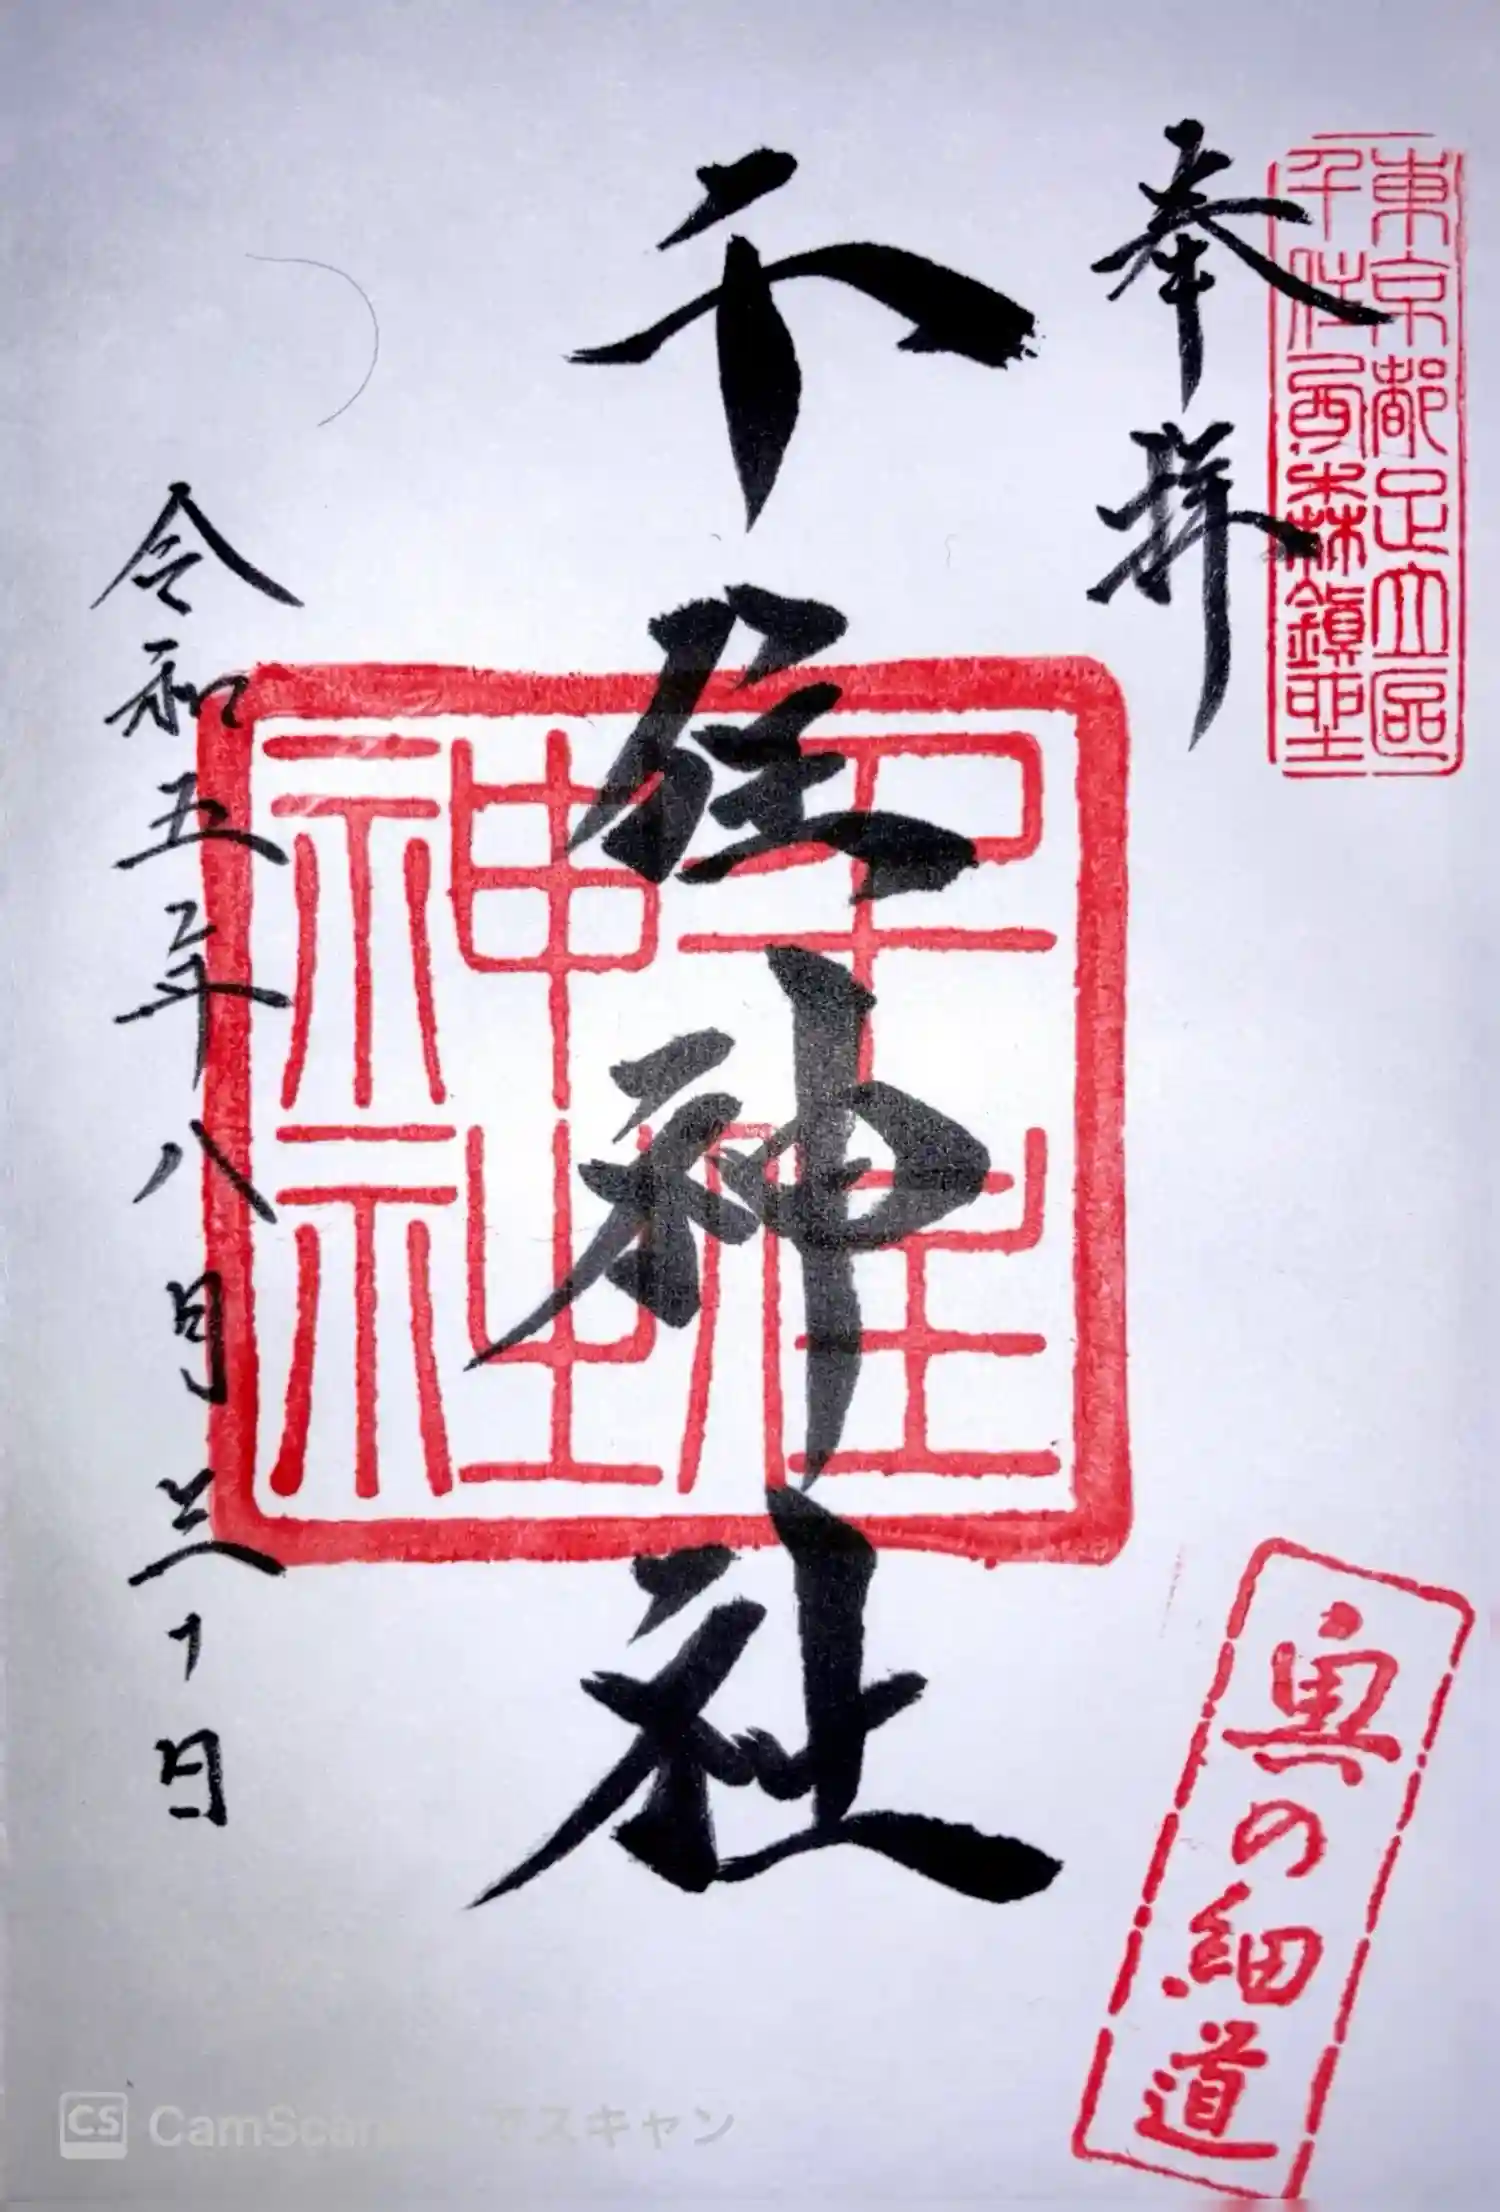 東京都足立區
千住西森鎭坐
奉拝
千住神社
千住
神社
令和五年八月三十日
奥の細道
CS CamScan
スキャン